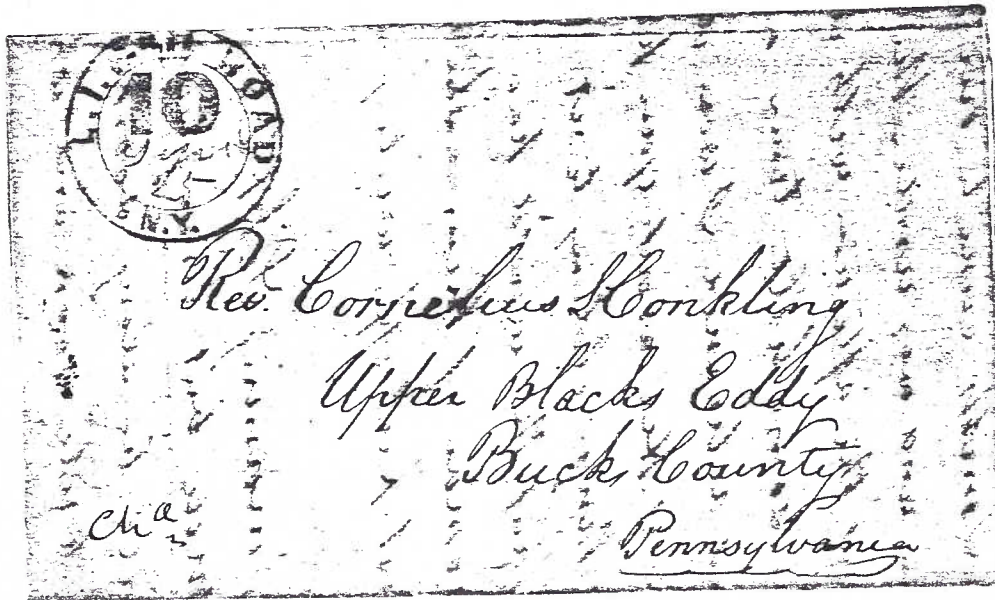 L.I. ROAD
10
N.Y.
Rev. Cornelius S Conkling
Upper Blacks Eddy
Bucks County
Pennsylvania
Cha